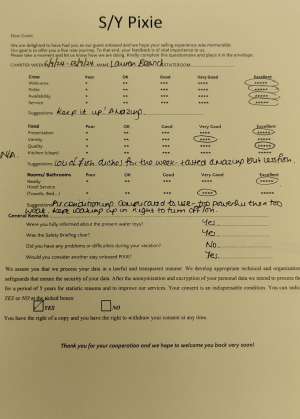 S/Y Pixie
Dear Guest,
We are delighted to have had you as our guest onboard and we hope your sailing experience was memorable.
Our goal is to offer you a five star journey. To that end, your feedback is of vital importance to us.
Please take a moment and let us know how we are doing. Kindly complete this questionnaire and place it in the envelope.
CHARTER WEEK NAME Lauren
Crew Poor OK Good Very Good Excellent
Welcome * ** *** **** *****
Polite * ** *** **** *****
Availability * ** *** **** *****
Service * ** *** **** *****
Suggestions: Keep it up! Amazing.
Food Poor OK Good Very Good Excellent
Presentation * ** *** **** *****
Variety * ** *** **** *****
Quality * ** *** **** *****
N/A. Kitchen (chart) * ** *** **** *****
Suggestions: Lot of fish dishes for the week - tasted amazing but less fish.
Rooms/ Bathrooms Poor OK Good Very Good Excellent
Ready * ** *** **** *****
Good Service
(Towels, Bed...) * ** *** **** *****
Suggestions: Air conditioning complicated to use - too powerful then too
weak. Kept waking up in night to turn off/on.
General Remarks
Were you fully informed about the present water toys? Yes.
Was the Safety Briefing clear? Yes.
Did you have any problems or difficulties during your vacation? No.
Would you consider another stay onboard PIXIE? Yes.
We assure you that we process your data in a lawful and transparent manner. We develop appropriate technical and organization
safeguards that ensure the security of your data. After the anonymization and encryption of your personal data we intend to process the
for a period of 5 years for statistic reasons and to improve our services. Your consent is an indispensable condition. You can indic
YES or NO at the ticked boxes:
YES NO
You have the right of a copy and you have the right to withdraw your consent at any time.
Thank you for your cooperation and we hope to welcome you back very soon!